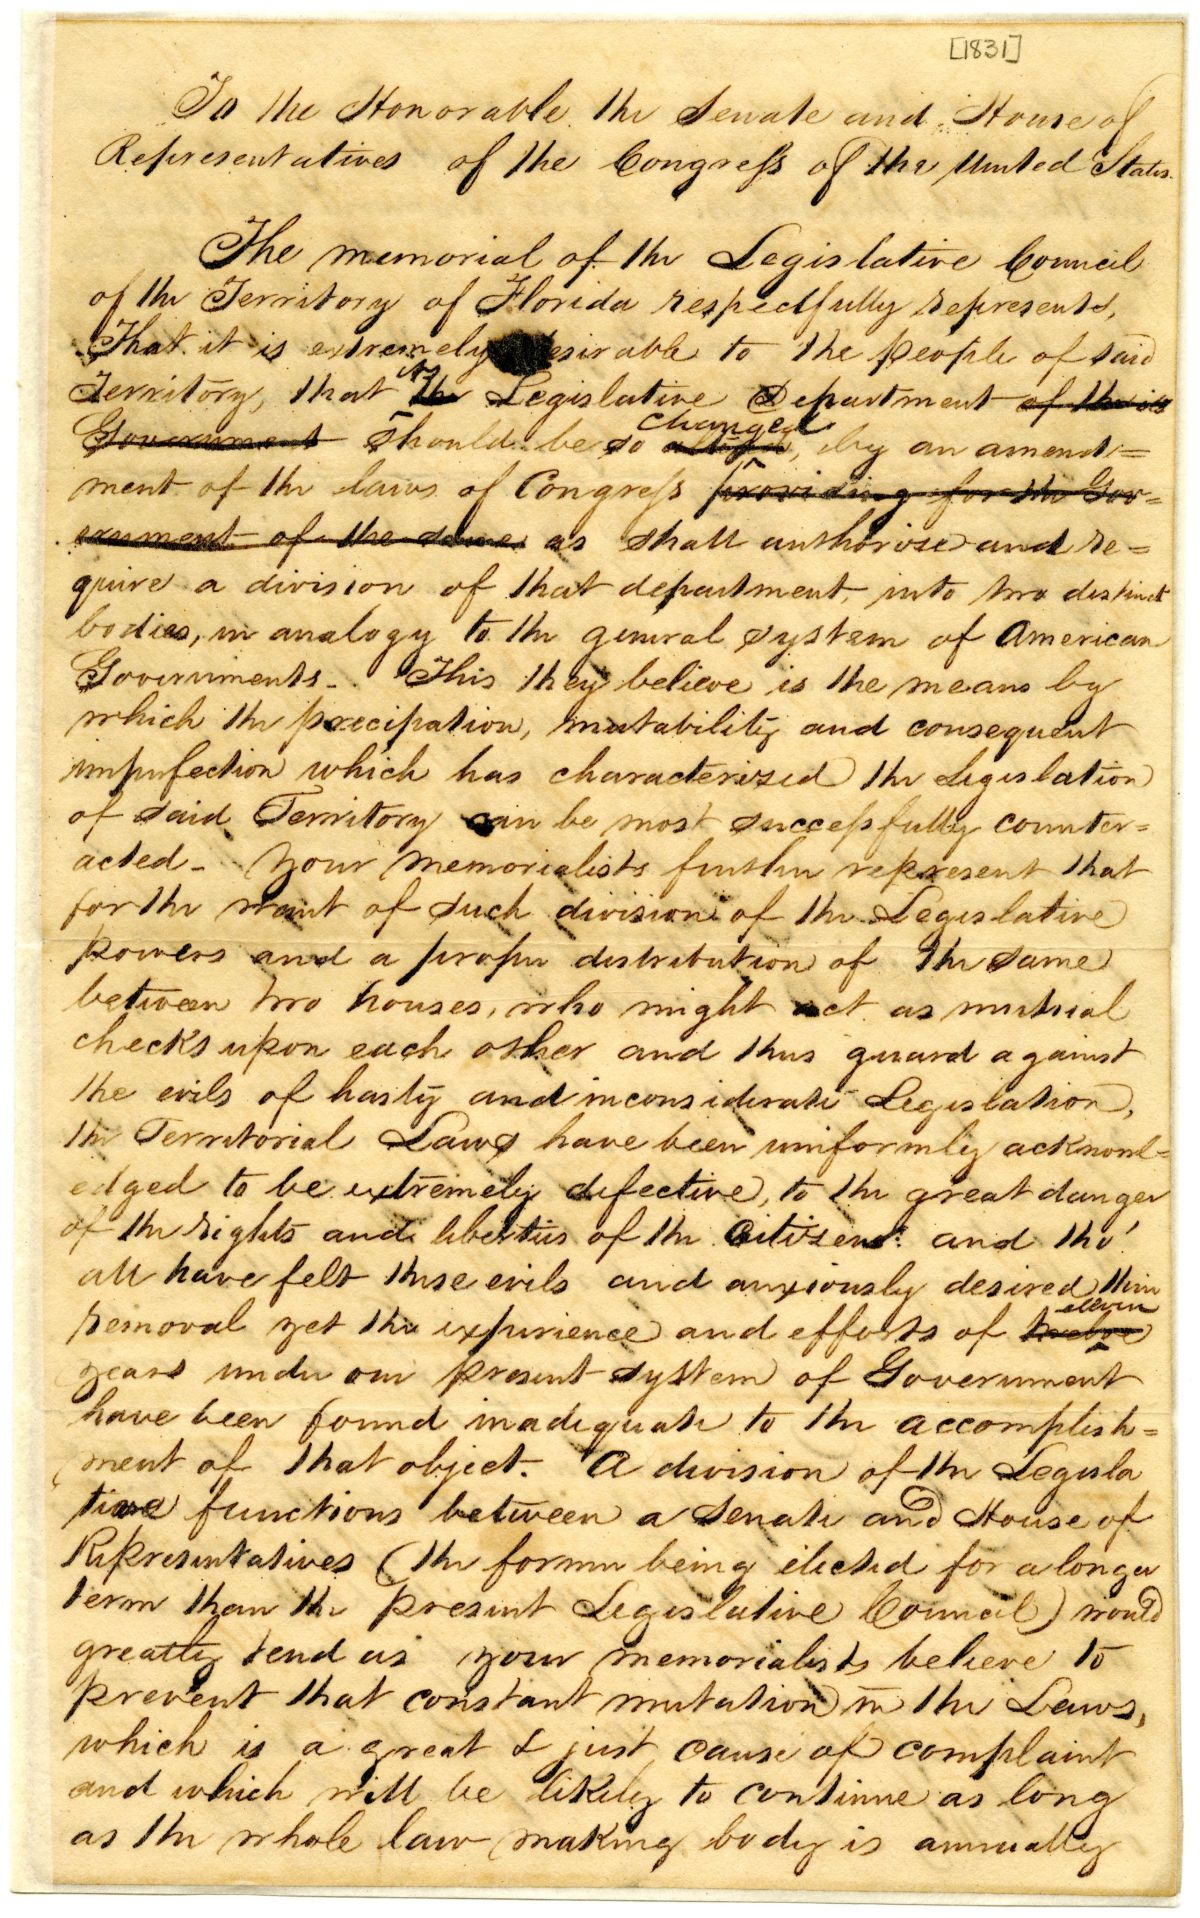 [1831]
To the Honorable the Senate and House of
Representatives of the Congress of the United States.
The memorial of the Legislative Council
of the Territory of Florida respectfully represents,
That it is extremely desirable to the people of said
its
Territory, that the Legislative Department of their
changed
Government should be so altered, by an amend=
ment of the laws of Congress providing for the Gov=
ernment of the same as shall authorise and re=
quire a division of that department, into two distinct
bodies, in analogy to the general system of American
Governments_. This they believe is the means by
which the precipation, mutability and consequent
imperfection which has characterized the Legislation
of said Territory can be most successfully counter=
acted_ Your memorialists further represent that
for the want of such division of the Legislative
powers and a proper distribution of the same
between two houses, who might act as mutual
checks upon each other and thus guard against
the evils of hasty and inconsiderate Legislation,
the Territorial Laws have been uniformly acknowl=
edged to be extremely defective, to the great danger
of the rights and liberties of the Citizens: and tho'
all have felt these evils and anxiously desired their
eleven
removal yet the experience and efforts of twelve
years under our present system of Government
have been found inadequate to the accomplish=
ment of that object. A division of the Legisla
tive functions between a Senate and House of
Representatives (the former being elected for a longer
term than the present Legislative Council) would
greatly tend as your memorialists believe to
prevent that constant mutation in the Laws,
which is a great & just cause of complaint
and which will be likely to continue as long
as the whole law making body is annually